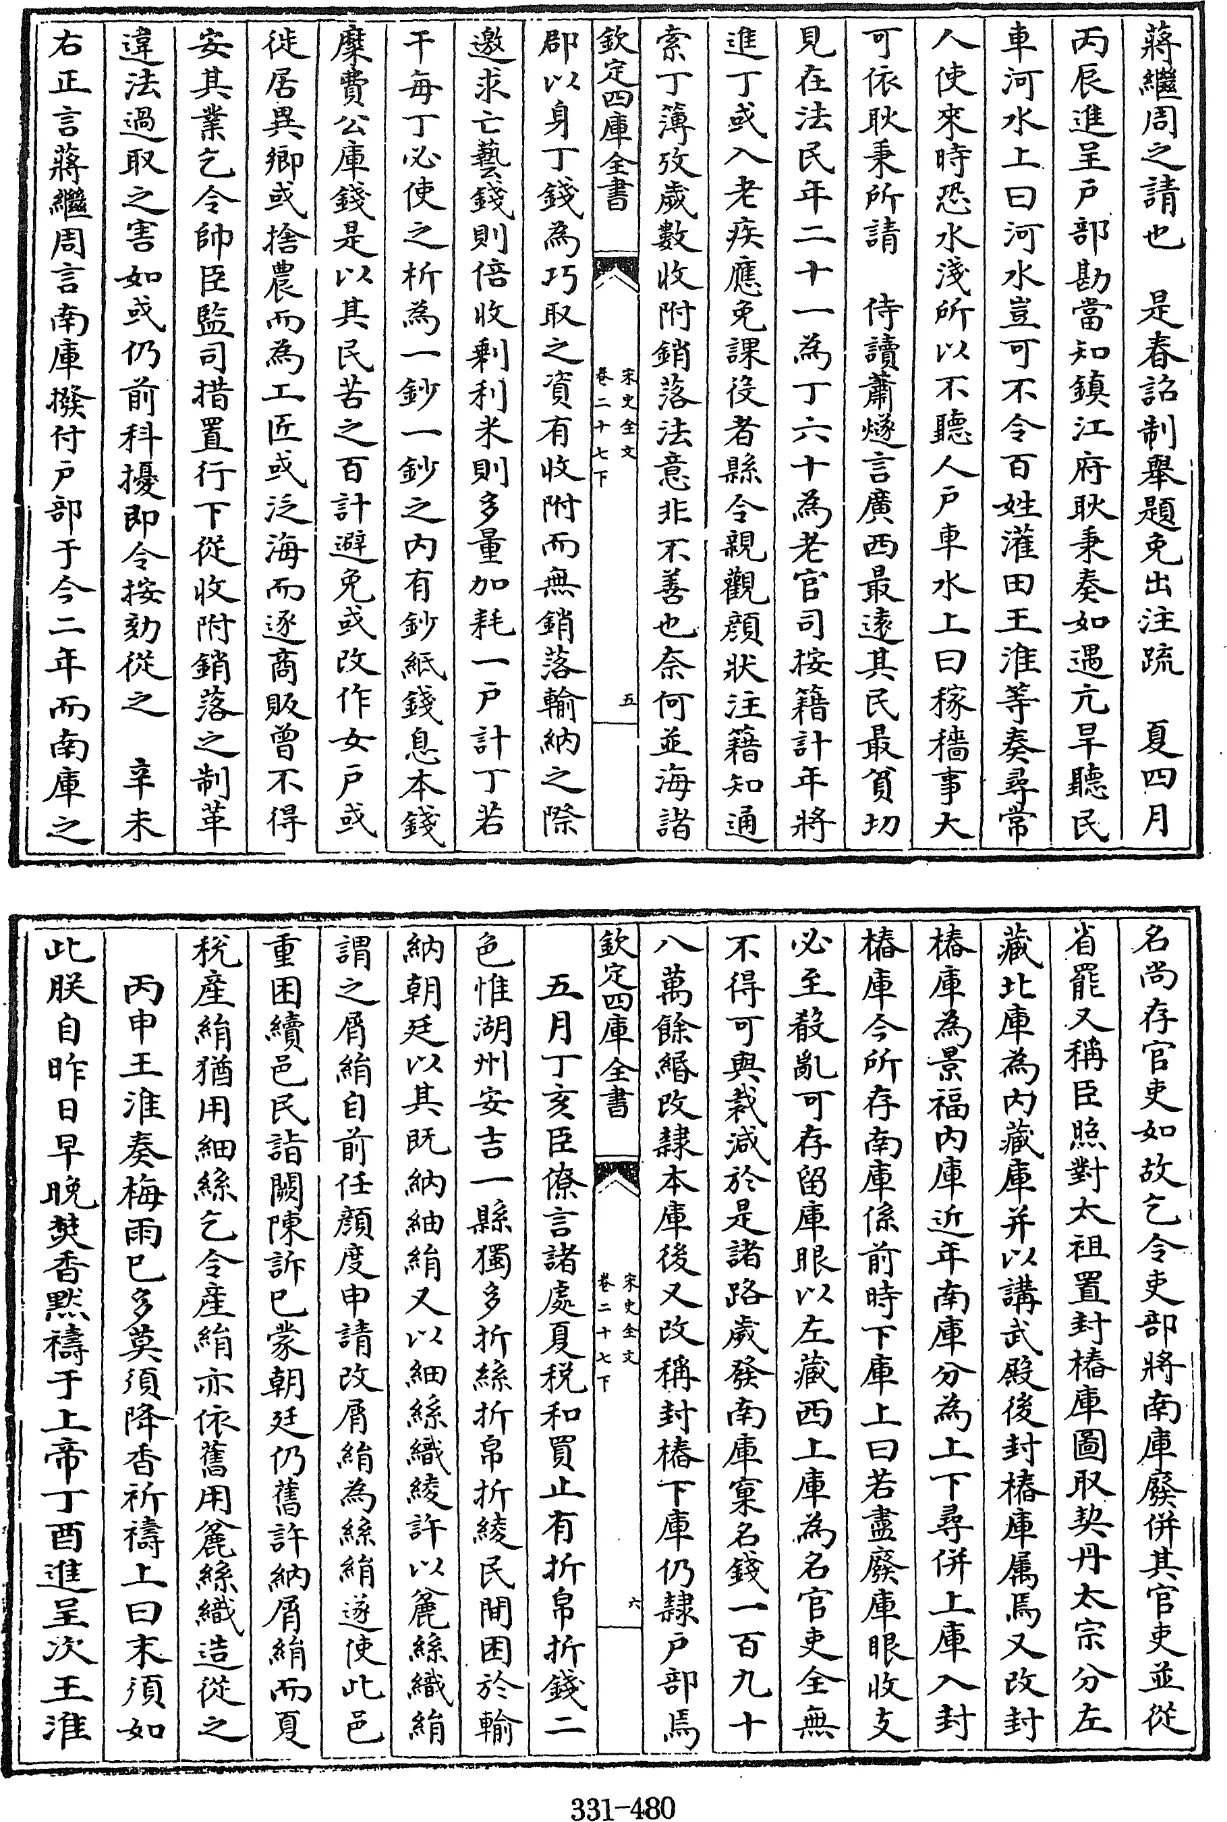 蔣繼周之請也　是春詔制舉題免出注疏　夏四月
丙辰進呈戶部勘當知鎮江府耿秉奏如遇亢旱聽民
車河水上曰河水豈可不令百姓灌田王淮等奏尋常
人使來時恐水淺所以不聽人戶車水上曰稼穡事大
可依耿秉所請　侍讀蕭燧言廣西最遠其民最貧切
見在法民年二十一為丁六十為老官司按籍計年將
進丁或入老疾應免課役者縣令親觀顏狀注籍知通
索丁簿攷歲數收附銷落法意非不善也奈何並海諸
欽定四庫全書
宋史全文
卷二十七下
五
郡以身丁錢為巧取之資有收附而無銷落輸納之際
邀求亡藝錢則倍收剩利米則多量加耗一戶計丁若
干每丁必使之析為一鈔一鈔之內有鈔紙錢息本錢
糜費公庫錢是以其民苦之百計避免或改作女戶或
徙居異鄉或捨農而為工匠或泛海而逐商販曾不得
安其業乞令帥臣監司措置行下從收附銷落之制革
違法過取之害如或仍前科擾即令按劾從之　辛未
右正言蔣繼周言南庫撥付戶部于今二年而南庫之
名尚存官吏如故乞令吏部將南庫廢併其官吏並從
省罷又稱臣照對太祖置封樁庫圖取契丹太宗分左
藏北庫為內藏庫并以講武殿後封樁庫属焉又改封
樁庫為景福內庫近年南庫分為上下尋併上庫入封
樁庫今所存南庫係前時下庫上曰若盡廢庫眼收支
必至殽亂可存留庫眼以左藏西上庫為名官吏全無
不得可與裁減於是諸路歲發南庫窠名錢一百九十
八萬餘緡改隸本庫後又改稱封樁下庫仍隸戶部焉
欽定四庫全書
宋史全文
卷二十七下
六
五月丁亥臣僚言諸處夏稅和買止有折帛折錢二
色惟湖州安吉一縣獨多折絲折帛折綾民間困於輸
納朝廷以其既納紬絹又以細絲織綾許以麄絲織絹
謂之屑絹自前任顏度申請改屑絹為絲絹遂使此邑
重困續邑民詣闕陳訴已蒙朝廷仍舊許納屑絹而夏
稅產絹猶用細絲乞令產絹亦依舊用麄絲織造從之
丙申王淮奏梅雨已多莫須降香祈禱上曰未須如
此朕自昨日早晚焚香默禱于上帝丁酉進呈次王淮
331-480